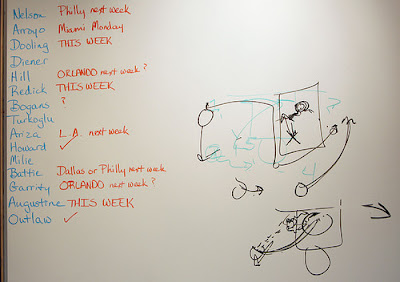 Nelson Philly next week
Arroyo Miami Monday
Dooling THIS WEEK
Diener
Hill ORLANDO next week?
Redick THIS WEEK
Bogans ?
Turkoglu
Ariza L.A. next week
Howard ✓
Milic
Battie Dallas or Philly next week
Garrity ORLANDO next week?
Augustine THIS WEEK
Outlaw ✓